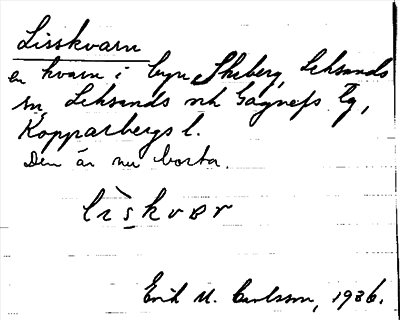 Lisskvarn
en kvarn i byn Skeberg, Leksands
sn, Leksands och Gagnefs tg,
Kopparbergs l.
Den är nu borta.
lìskvaʀ
Erik M. Carlsson, 1936.